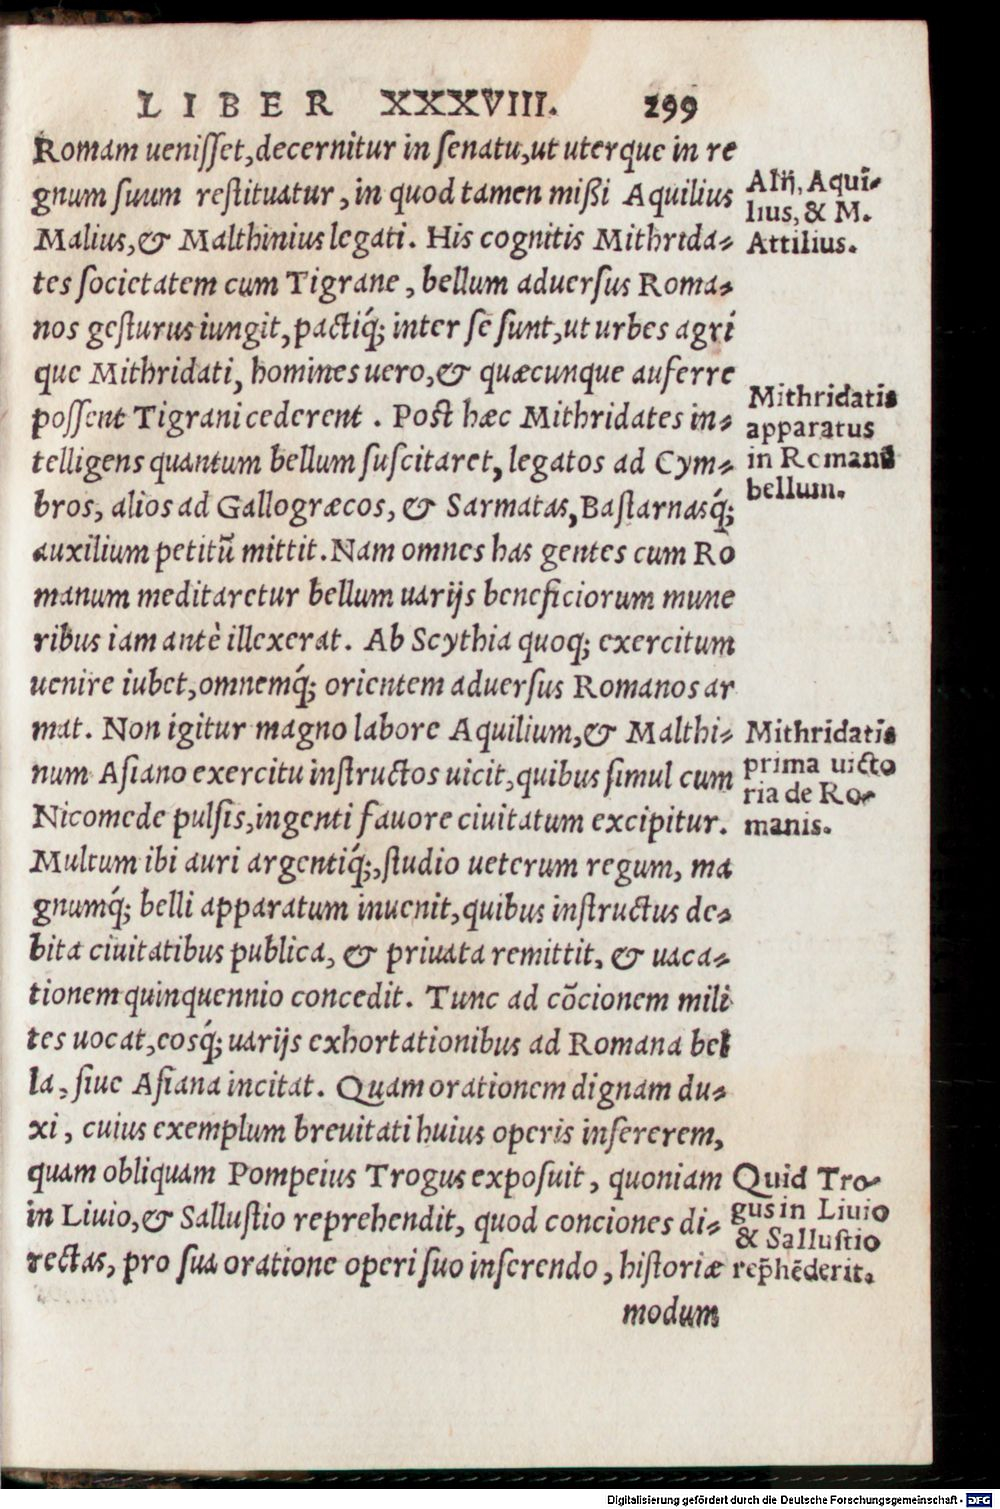 LIBER XXXVIII. 299
Romam uenisset, decernitur in senatu, ut uterque in re
gnum suum restituatur, in quod tamen mißi Aquilius
Malius, & Malthinius legati. His cognitis Mithrida-
tes societatem cum Tigrane, bellum aduersus Roma-
nos gesturus iungit, pactiq́; inter se sunt, ut urbes agri
que Mithridati, homines uero, & quæcunque auferre
possent Tigrani cederent. Post hæc Mithridates in-
telligens quantum bellum suscitaret, legatos ad Cym-
bros, alios ad Gallogræcos, & Sarmatas, Bastarnasq́;
auxilium petitū mittit. Nam omnes has gentes cum Ro
manum meditaretur bellum uarijs beneficiorum mune
ribus iam antè illexerat. Ab Scythia quoq; exercitum
uenire iubet, omnemq́; orientem aduersus Romanos ar
mat. Non igitur magno labore Aquilium, & Malthi-
num Asiano exercitu instructos uicit, quibus simul cum
Nicomede pulsis, ingenti fauore ciuitatum excipitur.
Multum ibi auri argentiq́;, studio ueterum regum, ma
gnumq́; belli apparatum inuenit, quibus instructus de-
bita ciuitatibus publica, & priuata remittit, & uaca-
tionem quinquennio concedit. Tunc ad cōcionem mili
tes uocat, eosq́; uarijs exhortationibus ad Romana bel
la, siue Asiana incitat. Quam orationem dignam du-
xi, cuius exemplum breuitati huius operis insererem,
quam obliquam Pompeius Trogus exposuit, quoniam
in Liuio, & Sallustio reprehendit, quod conciones di-
rectas, pro sua oratione operi suo inserendo, historiæ
modum
Alij, Aqui-
lius, & M.
Attilius.
Mithridatis
apparatus
in Romanū
bellum.
Mithridatis
prima uicto
ria de Ro-
manis.
Quid Tro-
gus in Liuio
& Sallustio
rep̃hēderit.
Digitalisierung gefördert durch die Deutsche Forschungsgemeinschaft - DFG